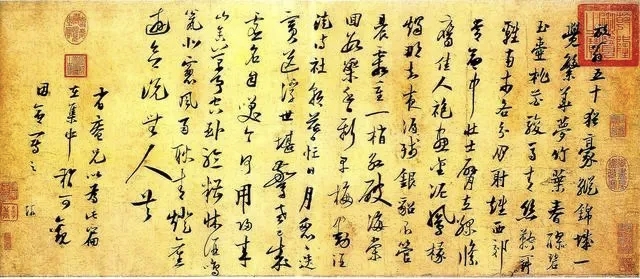 放翁五十猶豪縱錦城一
覺繁華夢竹葉春醪碧
玉壺桃花駿馬青絲鞚鬥
雞南市各分朋射雉西郊
常命中壯士臂立綠絛
鷹佳人袍畫金泥鳳椽
燭那知夜漏殘銀貂不管
晨霜重一梢紅破海棠
回數蕊香新早梅動酒
徒詩社朝暮忙日月匆匆迭
賓送浮世堪驚老已成
虛名自笑今何用歸來
山舍萬事空臥聽糟牀酒鳴
甕北窗風雨耿青燈舊
遊欲說無人共
省庵兄以為此篇
在集中稍可觀
因命寫之 游